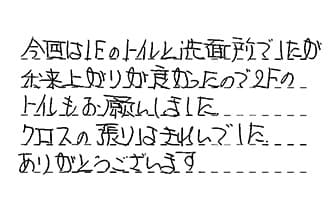 今回は1Fのトイレと洗面所でしたが
出来上がりが良かったので2Fの
トイレもお願いしました
クロスの張りはきれいでした
ありがとうございます